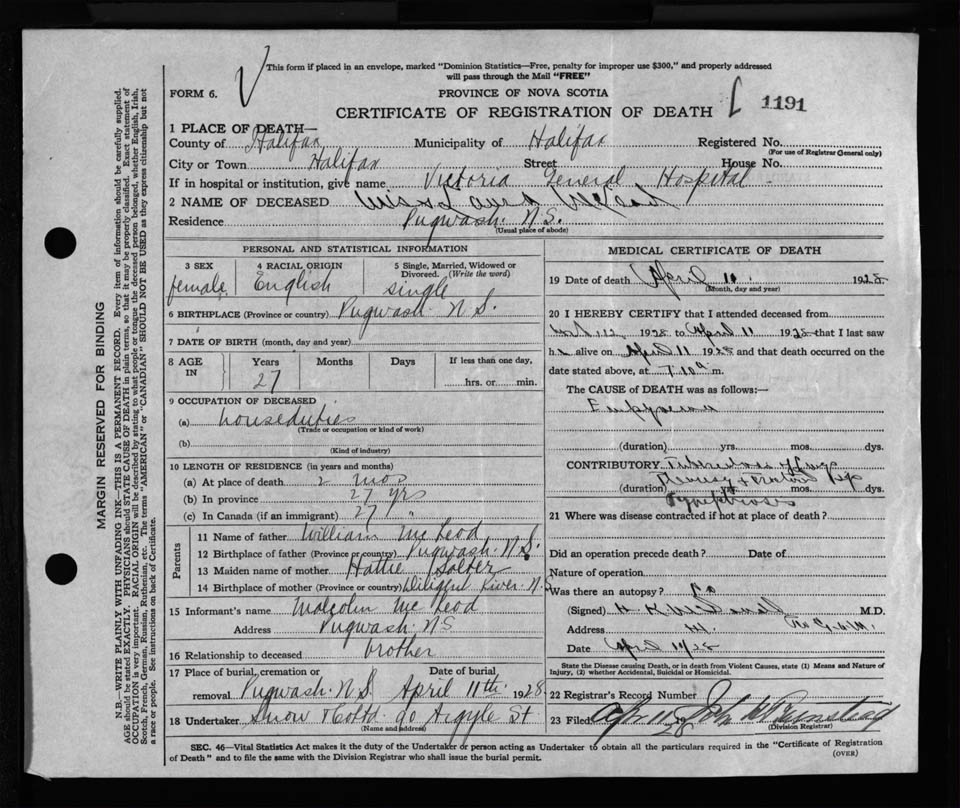 This form if placed in an envelope, marked "Dominion Statistics—Free, penalty for improper use $300," and properly addressed
will pass through the Mail "FREE"
FORM 6.
PROVINCE OF NOVA SCOTIA
CERTIFICATE OF REGISTRATION OF DEATH
1191
1 PLACE OF DEATH—
County of Halifax Municipality of Halifax Registered No.
(For use of Registrar General only)
City or Town Halifax Street House No.
If in hospital or institution, give name Victoria General Hospital
2 NAME OF DECEASED Miss McLeod
Residence Pugwash. N.S.
(Usual place of abode)
PERSONAL AND STATISTICAL INFORMATION
3 SEX
female
4 RACIAL ORIGIN
English
5 Single, Married, Widowed or
Divorced. (Write the word)
single
6 BIRTHPLACE (Province or country) Pugwash N.S.
7 DATE OF BIRTH (month, day and year)
8 AGE
IN
Years
27
Months
Days
If less than one day,
hrs. or min.
9 OCCUPATION OF DECEASED
(a) houseduties
(Trade or occupation or kind of work)
(b)
(Kind of industry)
10 LENGTH OF RESIDENCE (in years and months)
(a) At place of death 2 mos
(b) In province 27 yrs
(c) In Canada (if an immigrant) 27 "
Parents
11 Name of father William McLeod
12 Birthplace of father (Province or country) Pugwash. N.S.
13 Maiden name of mother Hattie
14 Birthplace of mother (Province or country) Diligen River. N.S
15 Informant's name Malcolm McLeod
Address Pugwash. NS
16 Relationship to deceased brother
17 Place of burial, cremation or Date of burial
removal Pugwash. N.S. April 11th 1928
18 Undertaker Snow & Co Ltd 90 Argyle St
(Name and address)
MEDICAL CERTIFICATE OF DEATH
19 Date of death April 11. 1928
(Month, day and year)
20 I HEREBY CERTIFY that I attended deceased from
12 1928 to April 11 1928 that I last saw
h alive on April 11 1928 and that death occurred on
date stated above, at 7.10 a m.
The CAUSE of DEATH was as follows:—
Empyema
(duration) yrs. mos. dys.
CONTRIBUTORY Tuberculosis of lungs
(duration) yrs. mos. dys.
21 Where was disease contracted if not at place of death?
Did an operation precede death? Date of
Nature of operation
Was there an autopsy? No
(Signed) M.D.
Address
Date April 11/28
State the Disease causing Death, or in death from Violent Causes, state (1) Means and Nature of
Injury, (2) whether Accidental, Suicidal or Homicidal.
22 Registrar's Record Number
23 Filed Apr 11 1928 John
(Division Registrar)
SEC. 46—Vital Statistics Act makes it the duty of the Undertaker or person acting as Undertaker to obtain all the particulars required in the "Certificate of Registration
of Death" and to file the same with the Division Registrar who shall issue the burial permit.
(OVER)
MARGIN RESERVED FOR BINDING
N.B.—WRITE PLAINLY WITH UNFADING INK—THIS IS A PERMANENT RECORD. Every item of information should be carefully supplied.
AGE should be stated EXACTLY. PHYSICIANS should STATE CAUSE OF DEATH in plain terms, so that it may be properly classified. Exact statement of
OCCUPATION is very important. RACIAL ORIGIN will be described by stating to what people or tongue the deceased person belonged, whether English, Irish,
Scotch, French, German, Russian, Ruthenian, etc. The terms "AMERICAN" or "CANADIAN" SHOULD NOT BE USED as they express citizenship but not
a race or people. See instructions on back of Certificate.